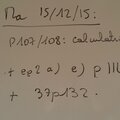 Ma 15/12/15:
p107/108: calculati
+ ep2 a) e) p 111
+ 37p132.